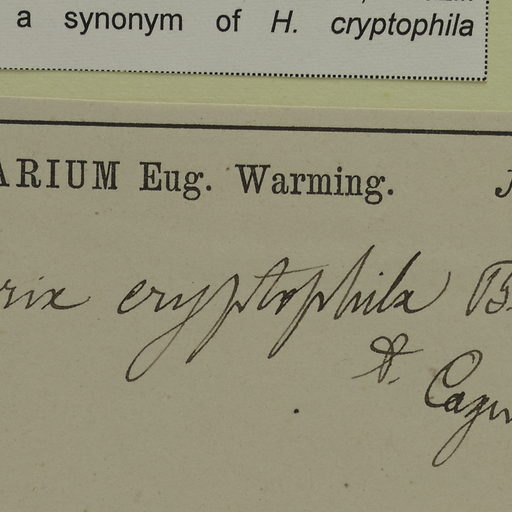 a synonym of H. cryptophila
ARIUM Eug. Warming.
rix cryptophila B
St. Cazu